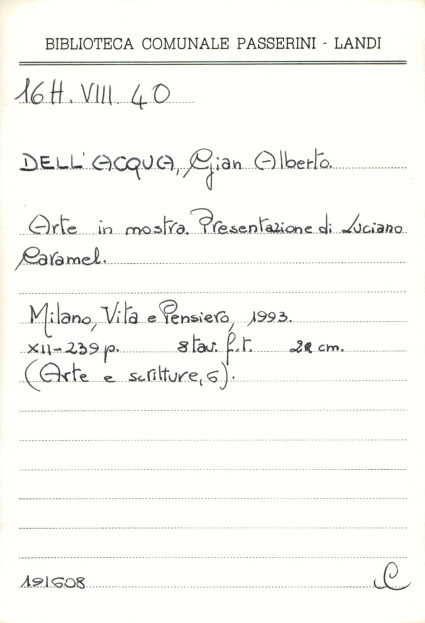 BIBLIOTECA COMUNALE PASSERINI - LANDI
16 H. VIII. 40
DELL'ACQUA, Gian Alberto.
Arte in mostra. Presentazione di Luciano
Caramel.
Milano, Vita e Pensiero, 1993.
XII-239 p. 8 tav. f.t. cm.
(Arte e scritture, 5).
191508
C